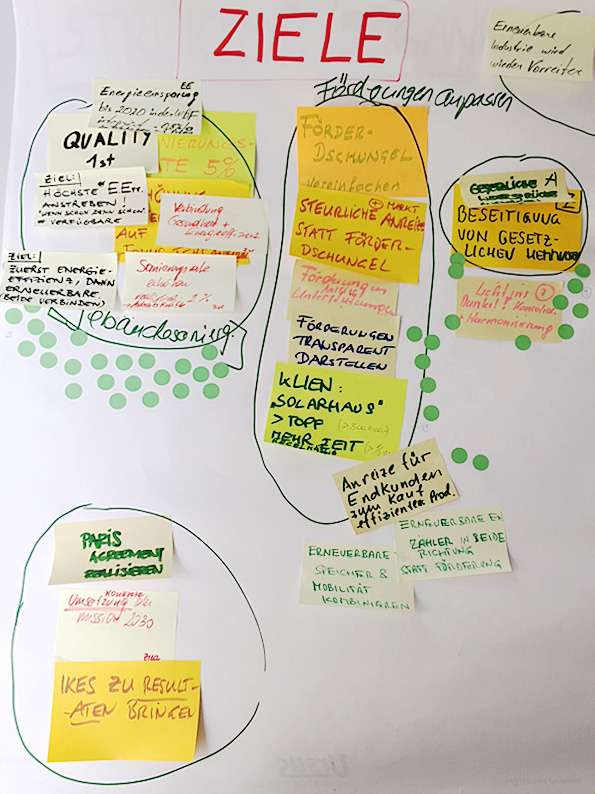 ZIELE
Erneuerbare
Industrie wird
wieder Vorreiter
EE
Energieeinsparung
bis 2020 in den
QUALITY
1st
NIERUNGS-
TE 5%
ZIEL:
HÖCHSTE "EE"
ANSTREBEN!
"WENN SCHON DENN SCHON"
VERFÜGBARE
AUF
Verbindung
Gesundheit +
ZIEL:
ZUERST ENERGIE-
EFFIZIENZ, DANN
ERNEUERBARE
(BEIDE VERBINDEN)
Sanierungsrate
erhöhen
2%
Förderungen anpassen
FÖRDER-
DSCHUNGEL
vereinfachen
+ MARKT
STEUERLICHE ANREIZE
STATT FÖRDER-
DSCHUNGEL
FÖRDERUNGEN
TRANSPARENT
DARSTELLEN
KLIEN:
"SOLARHAUS"
> TOPP
MEHR ZEIT
Anreize für
Endkunden
zum Kauf
effizienter Prod.
GESETZLICHE A
BESEITIGUNG
VON GESETZ-
LICHEN HEMMNISSEN
Licht ins
Dunkel!
+ Harmonisierung
ERNEUERBARE
SPEICHER &
MOBILITÄT
KOMBINIEREN
ERNEUERBARE EN
ZÄHLER IN BEIDE
RICHTUNG
STATT FÖRDERUNG
PARIS
AGREEMENT
REALISIEREN
KONKRETE
Umsetzung der
mission 2030
IKES ZU RESULT-
ATEN BRINGEN